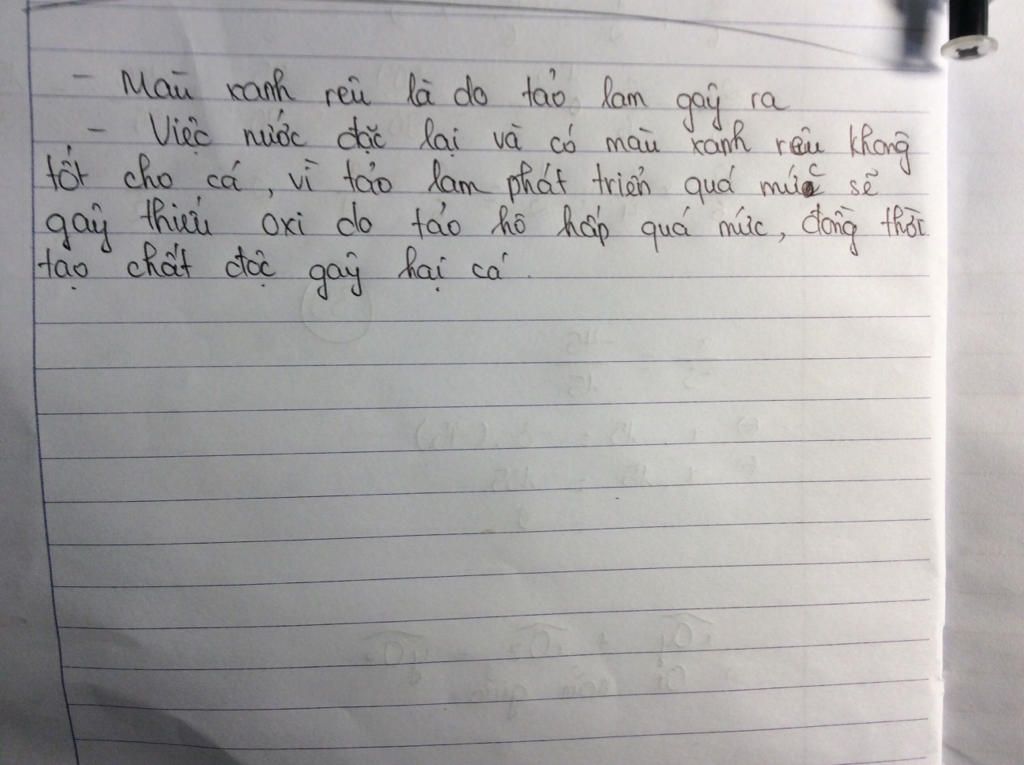 - Màu xanh rêu là do tảo lam gây ra
- Việc nước đặc lại và có màu xanh rêu không
tốt cho cá, vì tảo lam phát triển quá mức sẽ
gây thiếu oxi do tảo hô hấp quá mức, đồng thời
tạo chất độc gây hại cá.